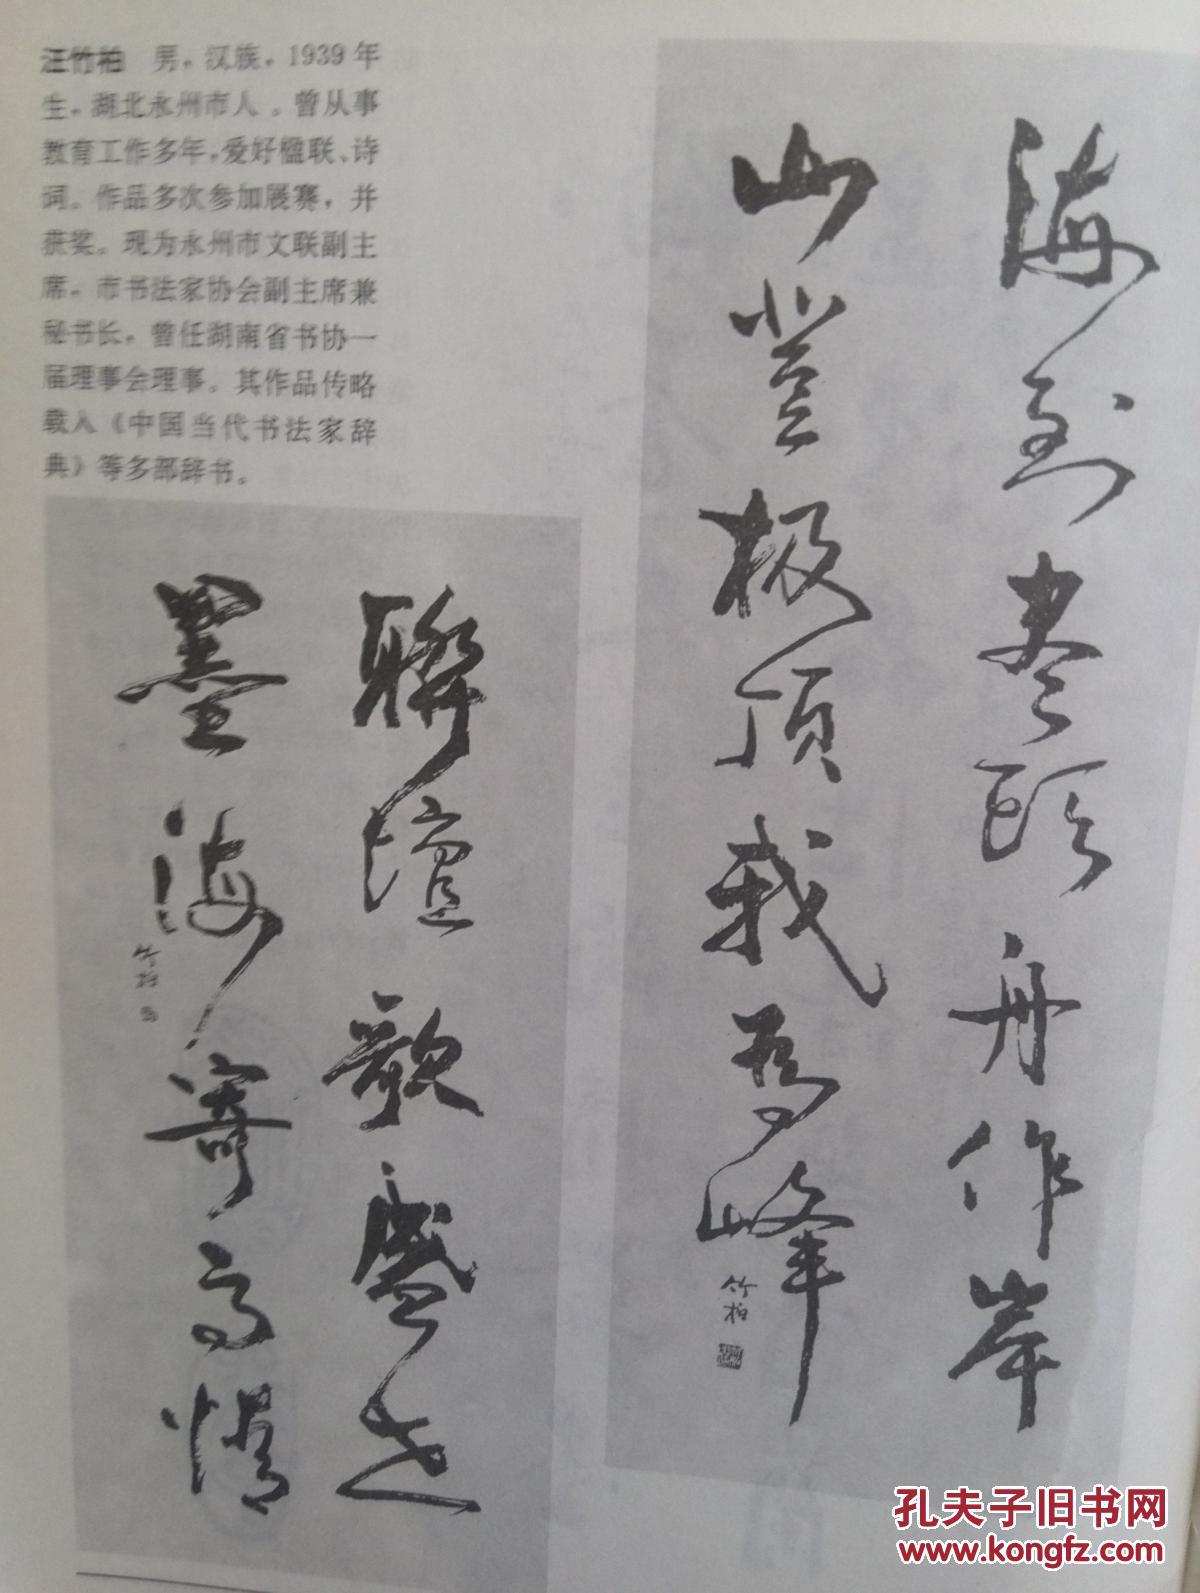 汪竹柏 男，汉族，1939年
生，湖北永州市人。曾从事
教育工作多年，爱好楹联、诗
词。作品多次参加展赛，并
获奖。现为永州市文联副主
席，市书法家协会副主席兼
秘书长，曾任湖南省书协一
届理事会理事。其作品传略
载入《中国当代书法家辞
典》等多部辞书。
海到尽头舟作岸
山登极顶我为峰
竹柏
聯壇歌盛世
墨海寄高情
竹柏
孔夫子旧书网
www.kongfz.com